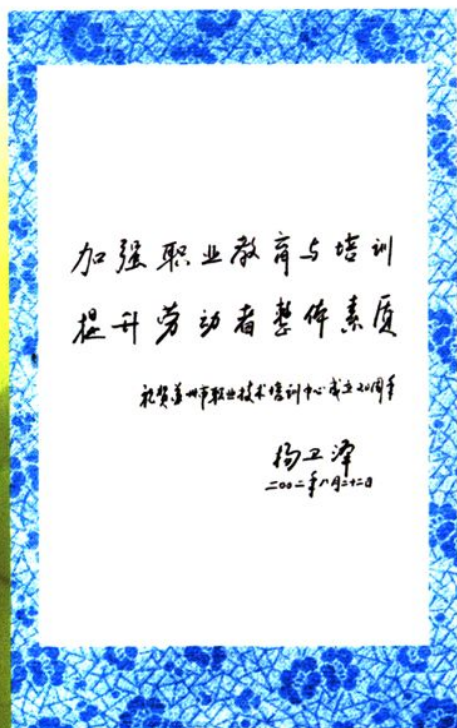 加强职业教育与培训
提升劳动者整体素质
祝贺苏州市职业技术培训中心成立20周年
杨卫泽
二〇〇二年八月二十二日